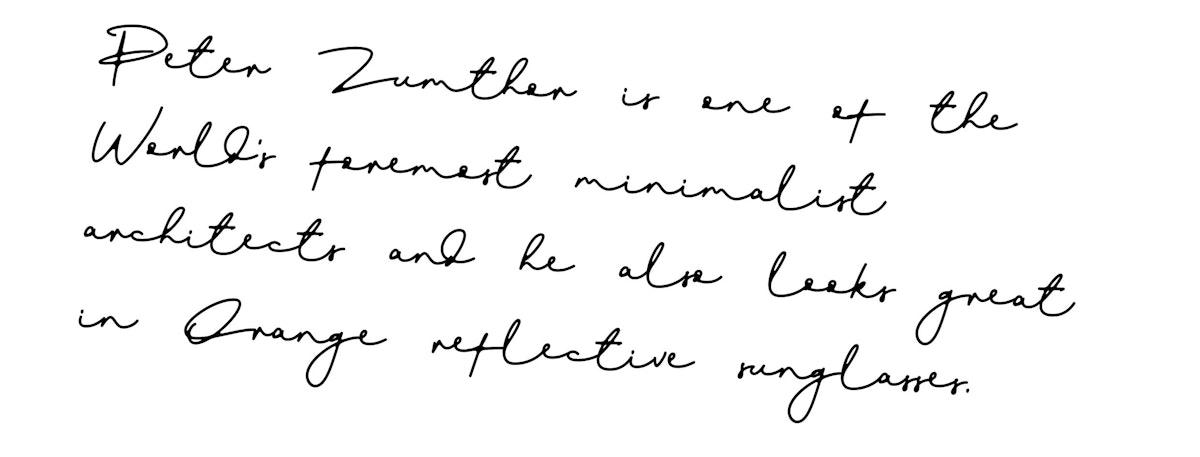 Peter Zumthor is one of the
World's foremost minimalist
architects and he also looks great
in Orange reflective sunglasses.